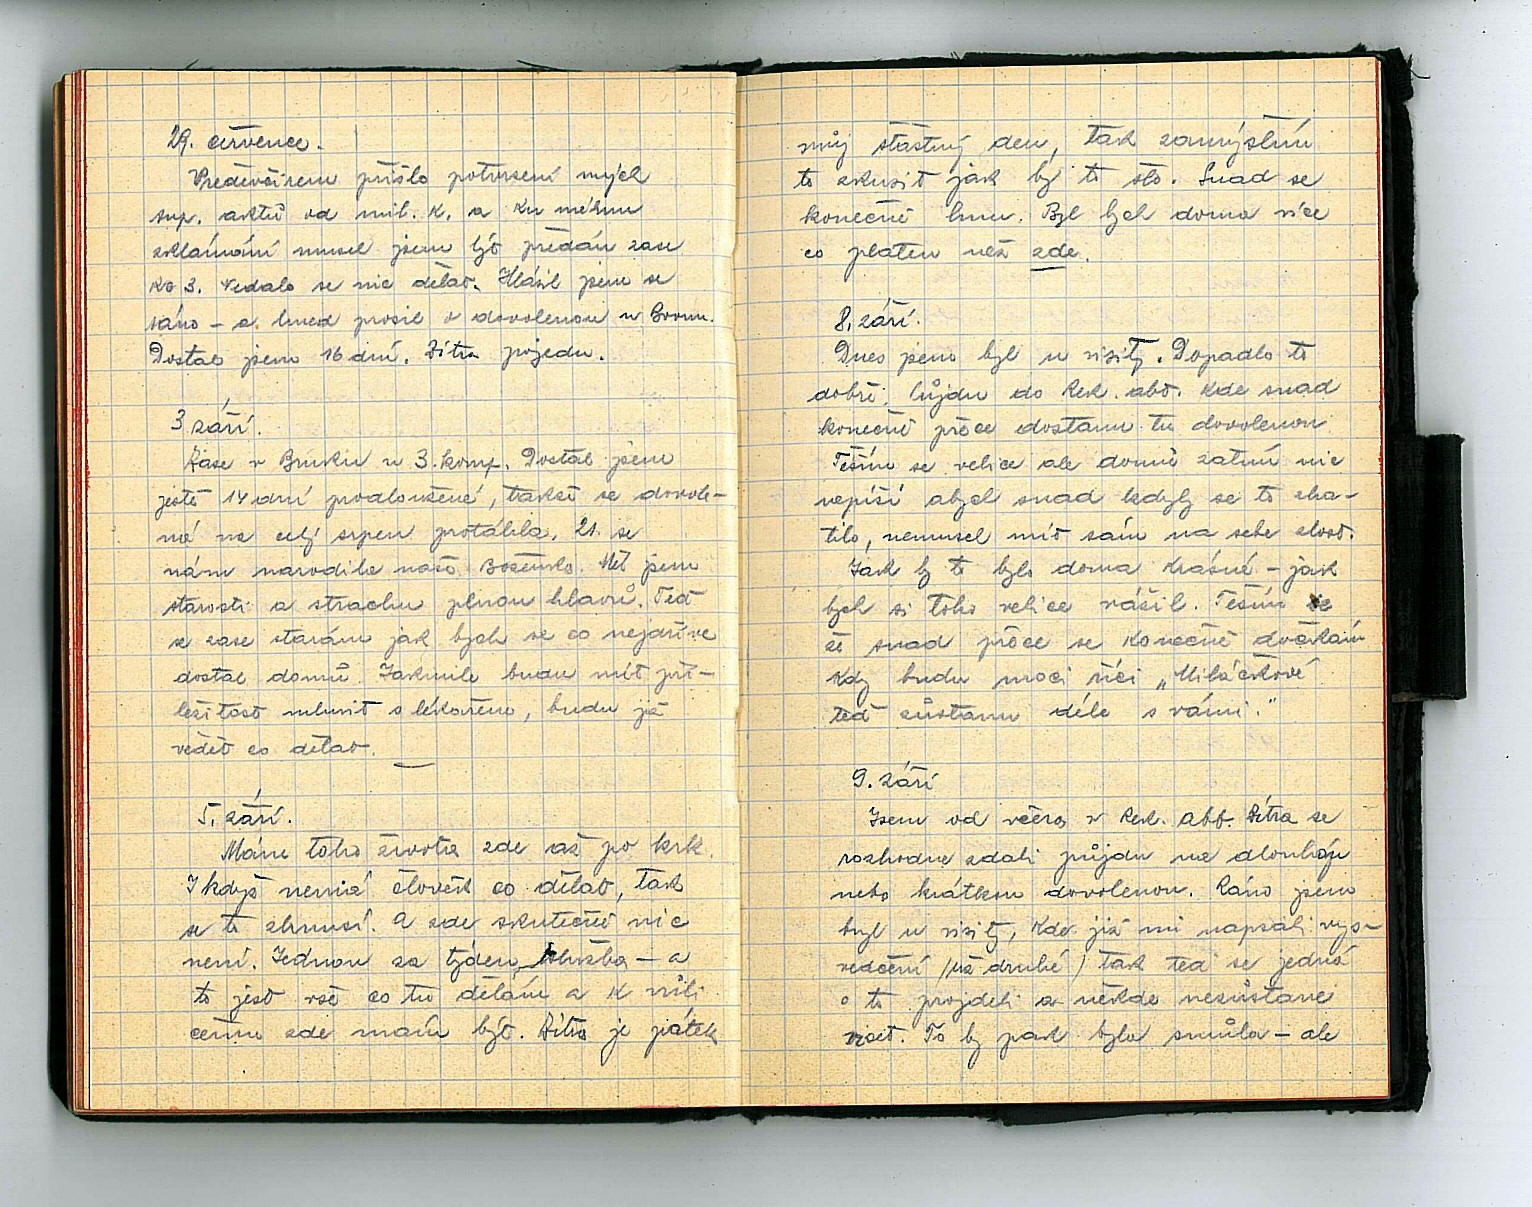 29. července.
Předevčírem přišlo potvrzení mých
sup. aktů od mil. K. a ku mému
zklamání musel jsem být předán zase
ko 3. Nedalo se nic dělat. Hlásil jsem se
ráno – a hned prosil o dovolenou u Grom.
Dostal jsem 16 dní. Zítra pojedu.
3 září.
Zase v Brucku u 3. komp. Dostal jsem
ještě 14 dní prodloužené, takže se dovole-
ná na celý srpen protáhla. 21. se
nám narodila naše Boženka. Měl jsem
starosti a strachu plnou hlavu. Teď
se zase starám jak bych se co nejdříve
dostal domů. Jakmile budu mít pří-
ležitost mluvit s lékařem, budu již
vědět co dělat.
5. září.
Mám toho života zde až po krk.
I když nemá člověk co dělat, tak
se to zhnusí. A zde skutečně nic
není. Jednou za týden služba – a
to jest vše co tu dělám a k vůli
čemu zde mám být. Zítra je pátek
můj šťastný den, tak zamýšlím
to zkusit jak by to šlo. Snad se
konečně hnu. Byl bych doma více
co platen než zde.
8. září.
Dnes jsem byl u visity. Dopadlo to
dobře. Půjdu do Rek. abt. kde snad
konečně přece dostanu tu dovolenou
Těším se velice ale domů zatím nic
nepíši abych snad kdyby se to zha-
tilo, nemusel mít sám na sebe zlost.
Jak by to bylo doma krásné – jak
bych si toho velice vážil. Těším se
že snad přece se konečně dočkám
kdy budu moci říci „Miláčkové
teď zůstanu déle s vámi."
9. září
Jsem od včera v Rek. abt. Zítra se
rozhodne zdali půjdu na dlouhou
nebo krátkou dovolenou. Ráno jsem
byl u visity, kde již mi napsali vys-
vedčení /už druhé/ tak teď se jedná
o to projdeli a někde nezůstane
vězet. To by pak byla smůla – ale